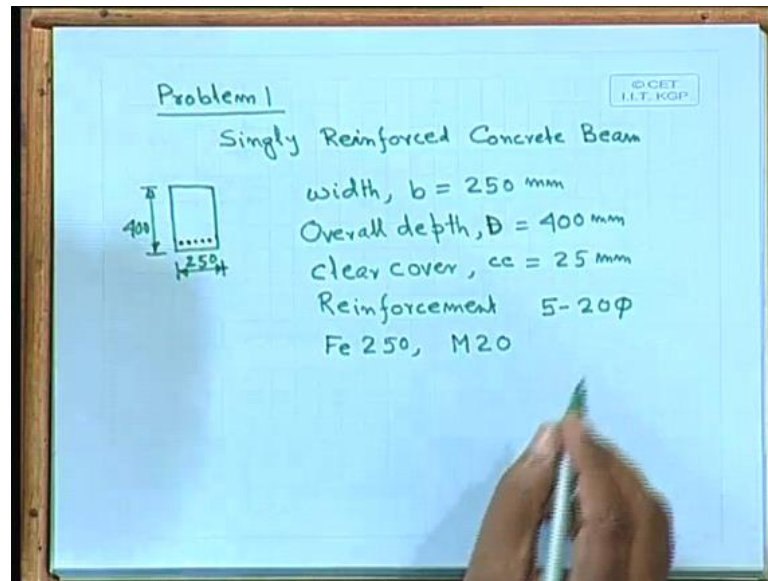 Problem 1
© CET
I.I.T. KGP
Singly Reinforced Concrete Beam
400
250
width, b = 250 mm
Overall depth, D = 400 mm
clear cover, cc = 25 mm
Reinforcement 5-20φ
Fe 250, M20